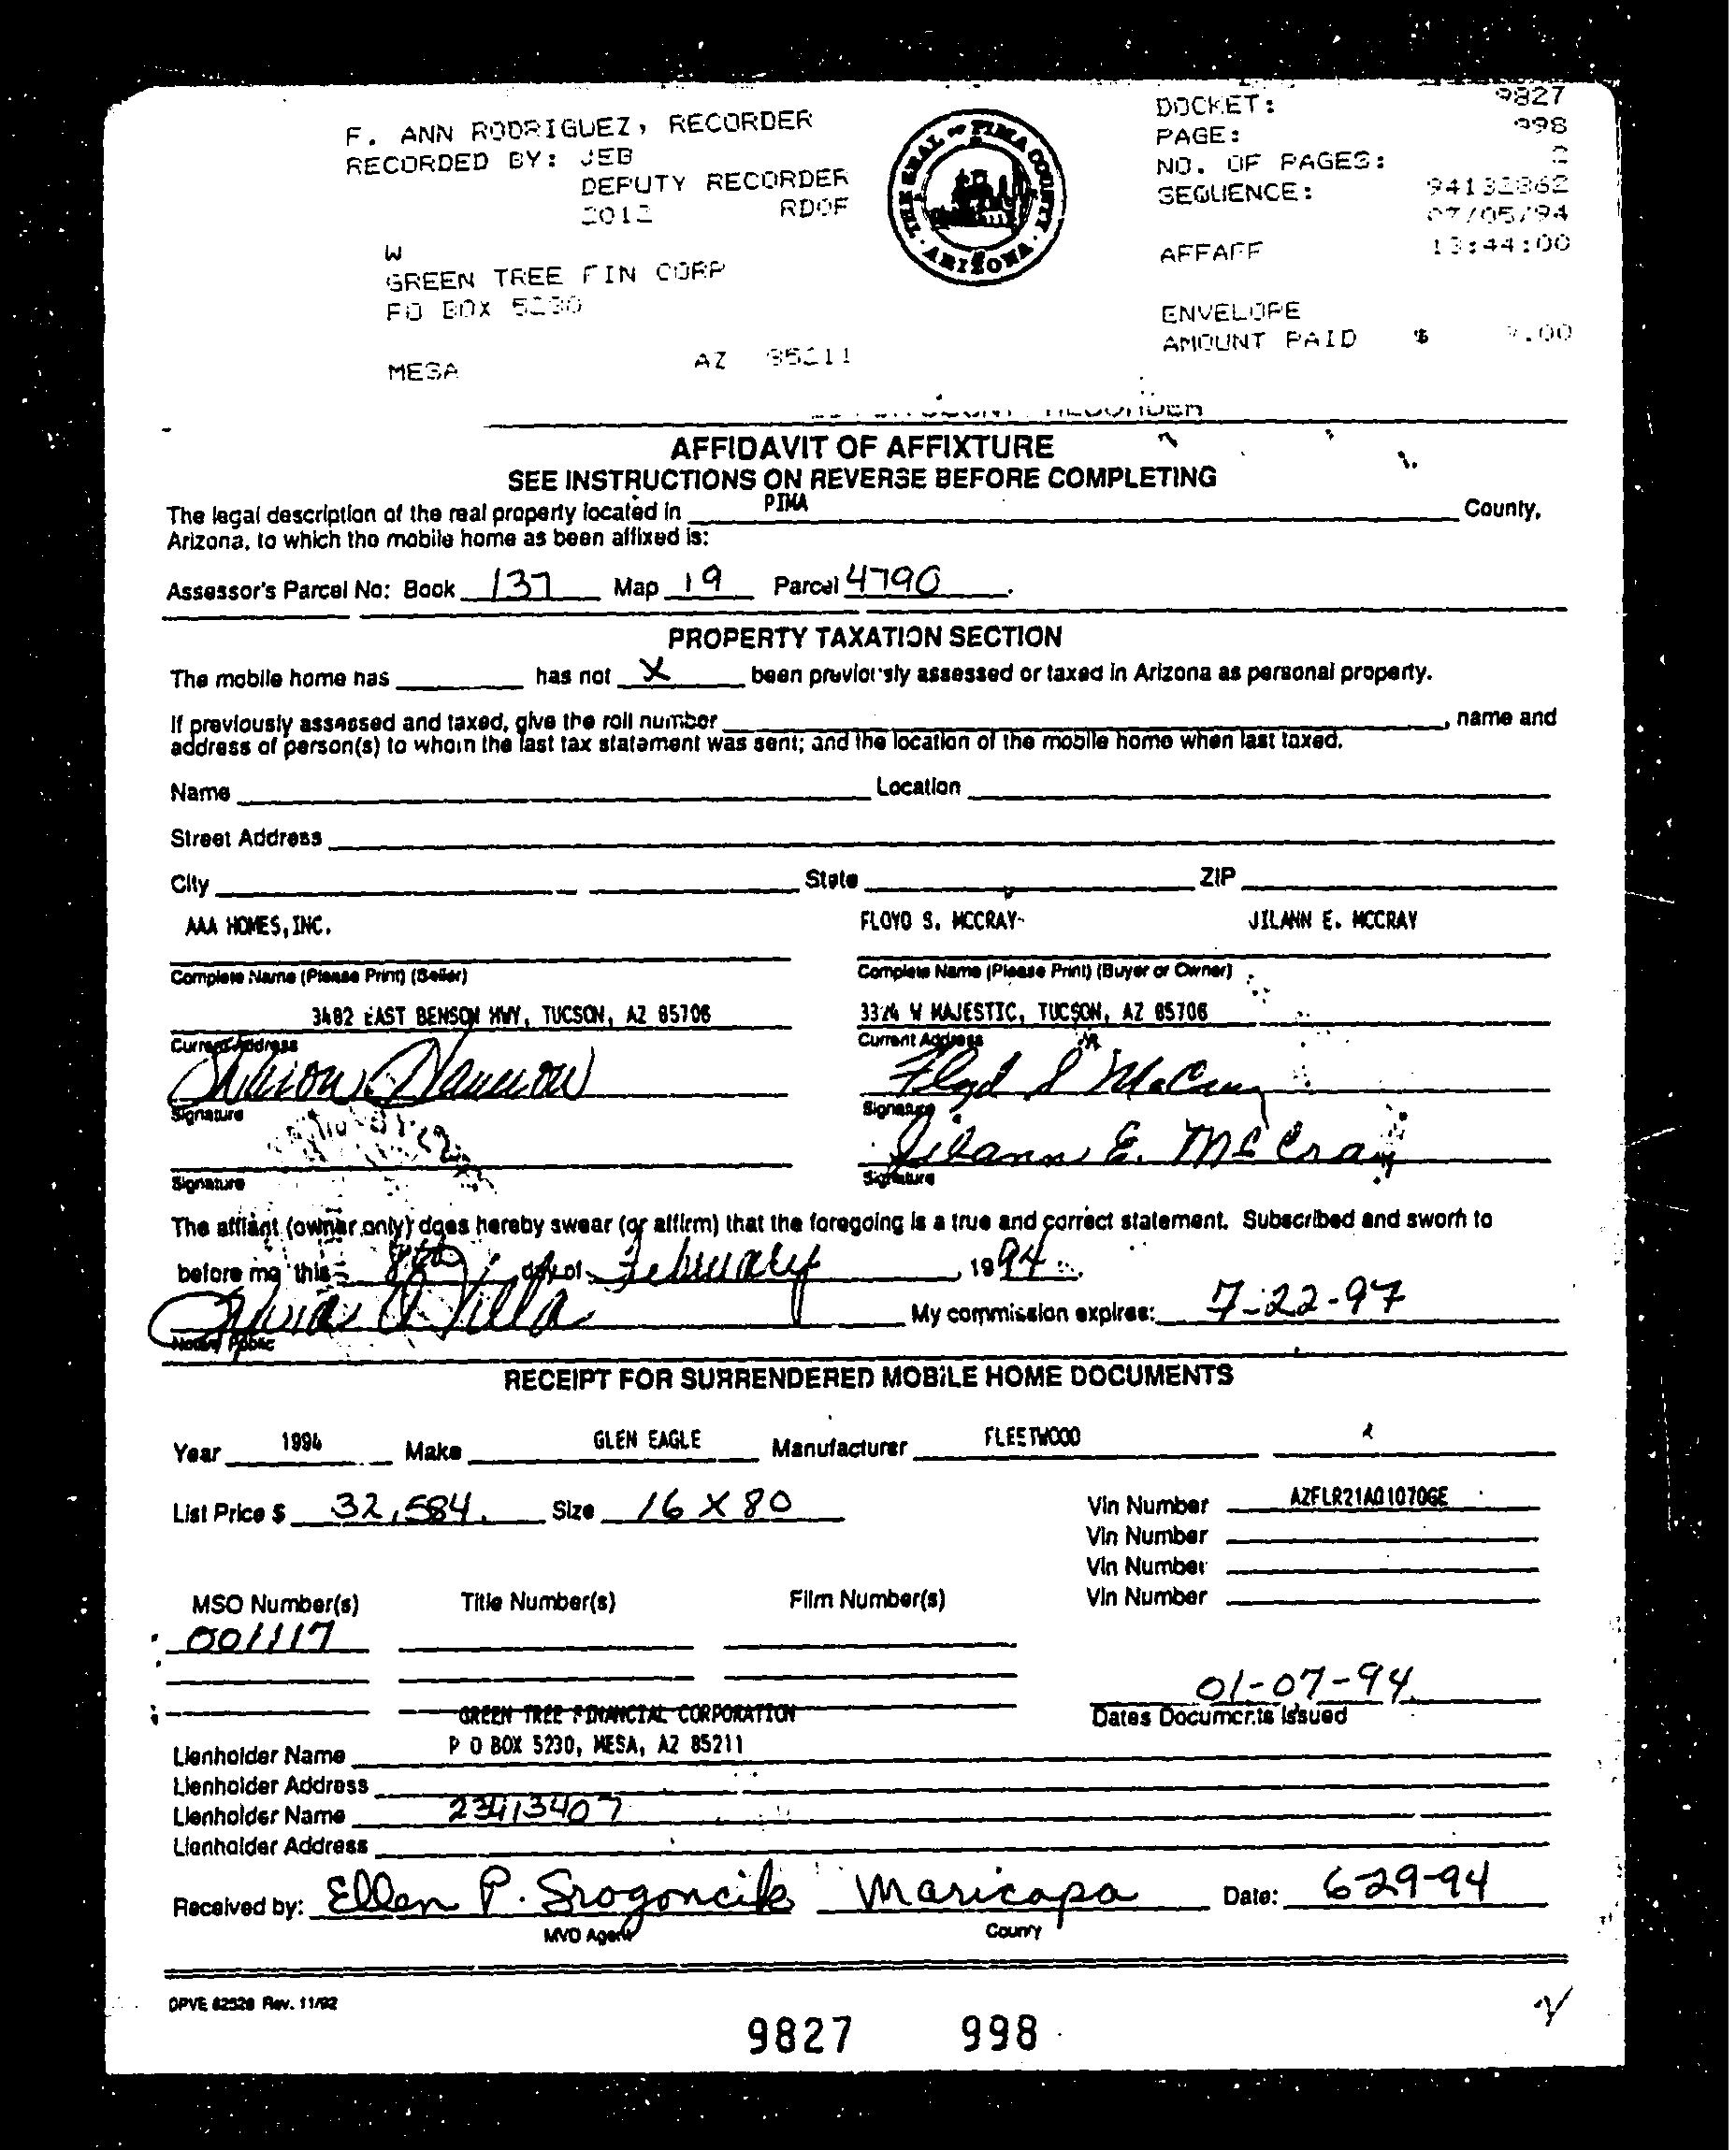 F. ANN RODRIGUEZ, RECORDER
RECORDED BY: JEB
DEPUTY RECORDER
2012 RDOF
W
GREEN TREE FIN CORP
PO BOX 5230
MESA AZ 85211
THE SEAL OF PIMA COUNTY · ARIZONA ·
DOCKET: 9827
PAGE: 998
NO. OF PAGES: 2
SEQUENCE: 94132862
07/05/94
AFFAFF 13:44:00
ENVELOPE
AMOUNT PAID $ .00
AFFIDAVIT OF AFFIXTURE
SEE INSTRUCTIONS ON REVERSE BEFORE COMPLETING
The legal description of the real property located in PIMA County,
Arizona, to which the mobile home as been affixed is:
Assessor's Parcel No: Book 137 Map 19 Parcel 4790.
PROPERTY TAXATION SECTION
The mobile home has has not X been previously assessed or taxed in Arizona as personal property.
If previously assessed and taxed, give the roll number , name and
address of person(s) to whom the last tax statement was sent; and the location of the mobile home when last taxed.
Name Location
Street Address
City State ZIP
AAA HOMES, INC. FLOYD S. MCCRAY JILANN E. MCCRAY
Complete Name (Please Print) (Seller) Complete Name (Please Print) (Buyer or Owner)
3482 EAST BENSON HWY, TUCSON, AZ 85706 W MAJESTIC, TUCSON, AZ 85706
Current Address Current Address
Floyd S McCray
Signature Signature
Jilann E. McCray
Signature Signature
The affiant (owner only) does hereby swear (or affirm) that the foregoing is a true and correct statement. Subscribed and sworn to
before me this 8th day of February, 1994.
Sylvia Villa My commission expires: 7-22-97
Notary Public
RECEIPT FOR SURRENDERED MOBILE HOME DOCUMENTS
Year 1994 Make GLEN EAGLE Manufacturer FLEETWOOD
List Price $ 32,584. Size 16 X 80 Vin Number AZFLR21A01070GE
Vin Number
Vin Number
MSO Number(s) Title Number(s) Film Number(s) Vin Number
001117
01-07-94
GREEN TREE FINANCIAL CORPORATION Dates Documents Issued
Lienholder Name P O BOX 5230, MESA, AZ 85211
Lienholder Address
Lienholder Name 23413407
Lienholder Address
Received by: Ellen P. Srogoncik Maricopa Date: 6-29-94
MVD Agent County
DPVE 62528 Rev. 11/92
9827 998